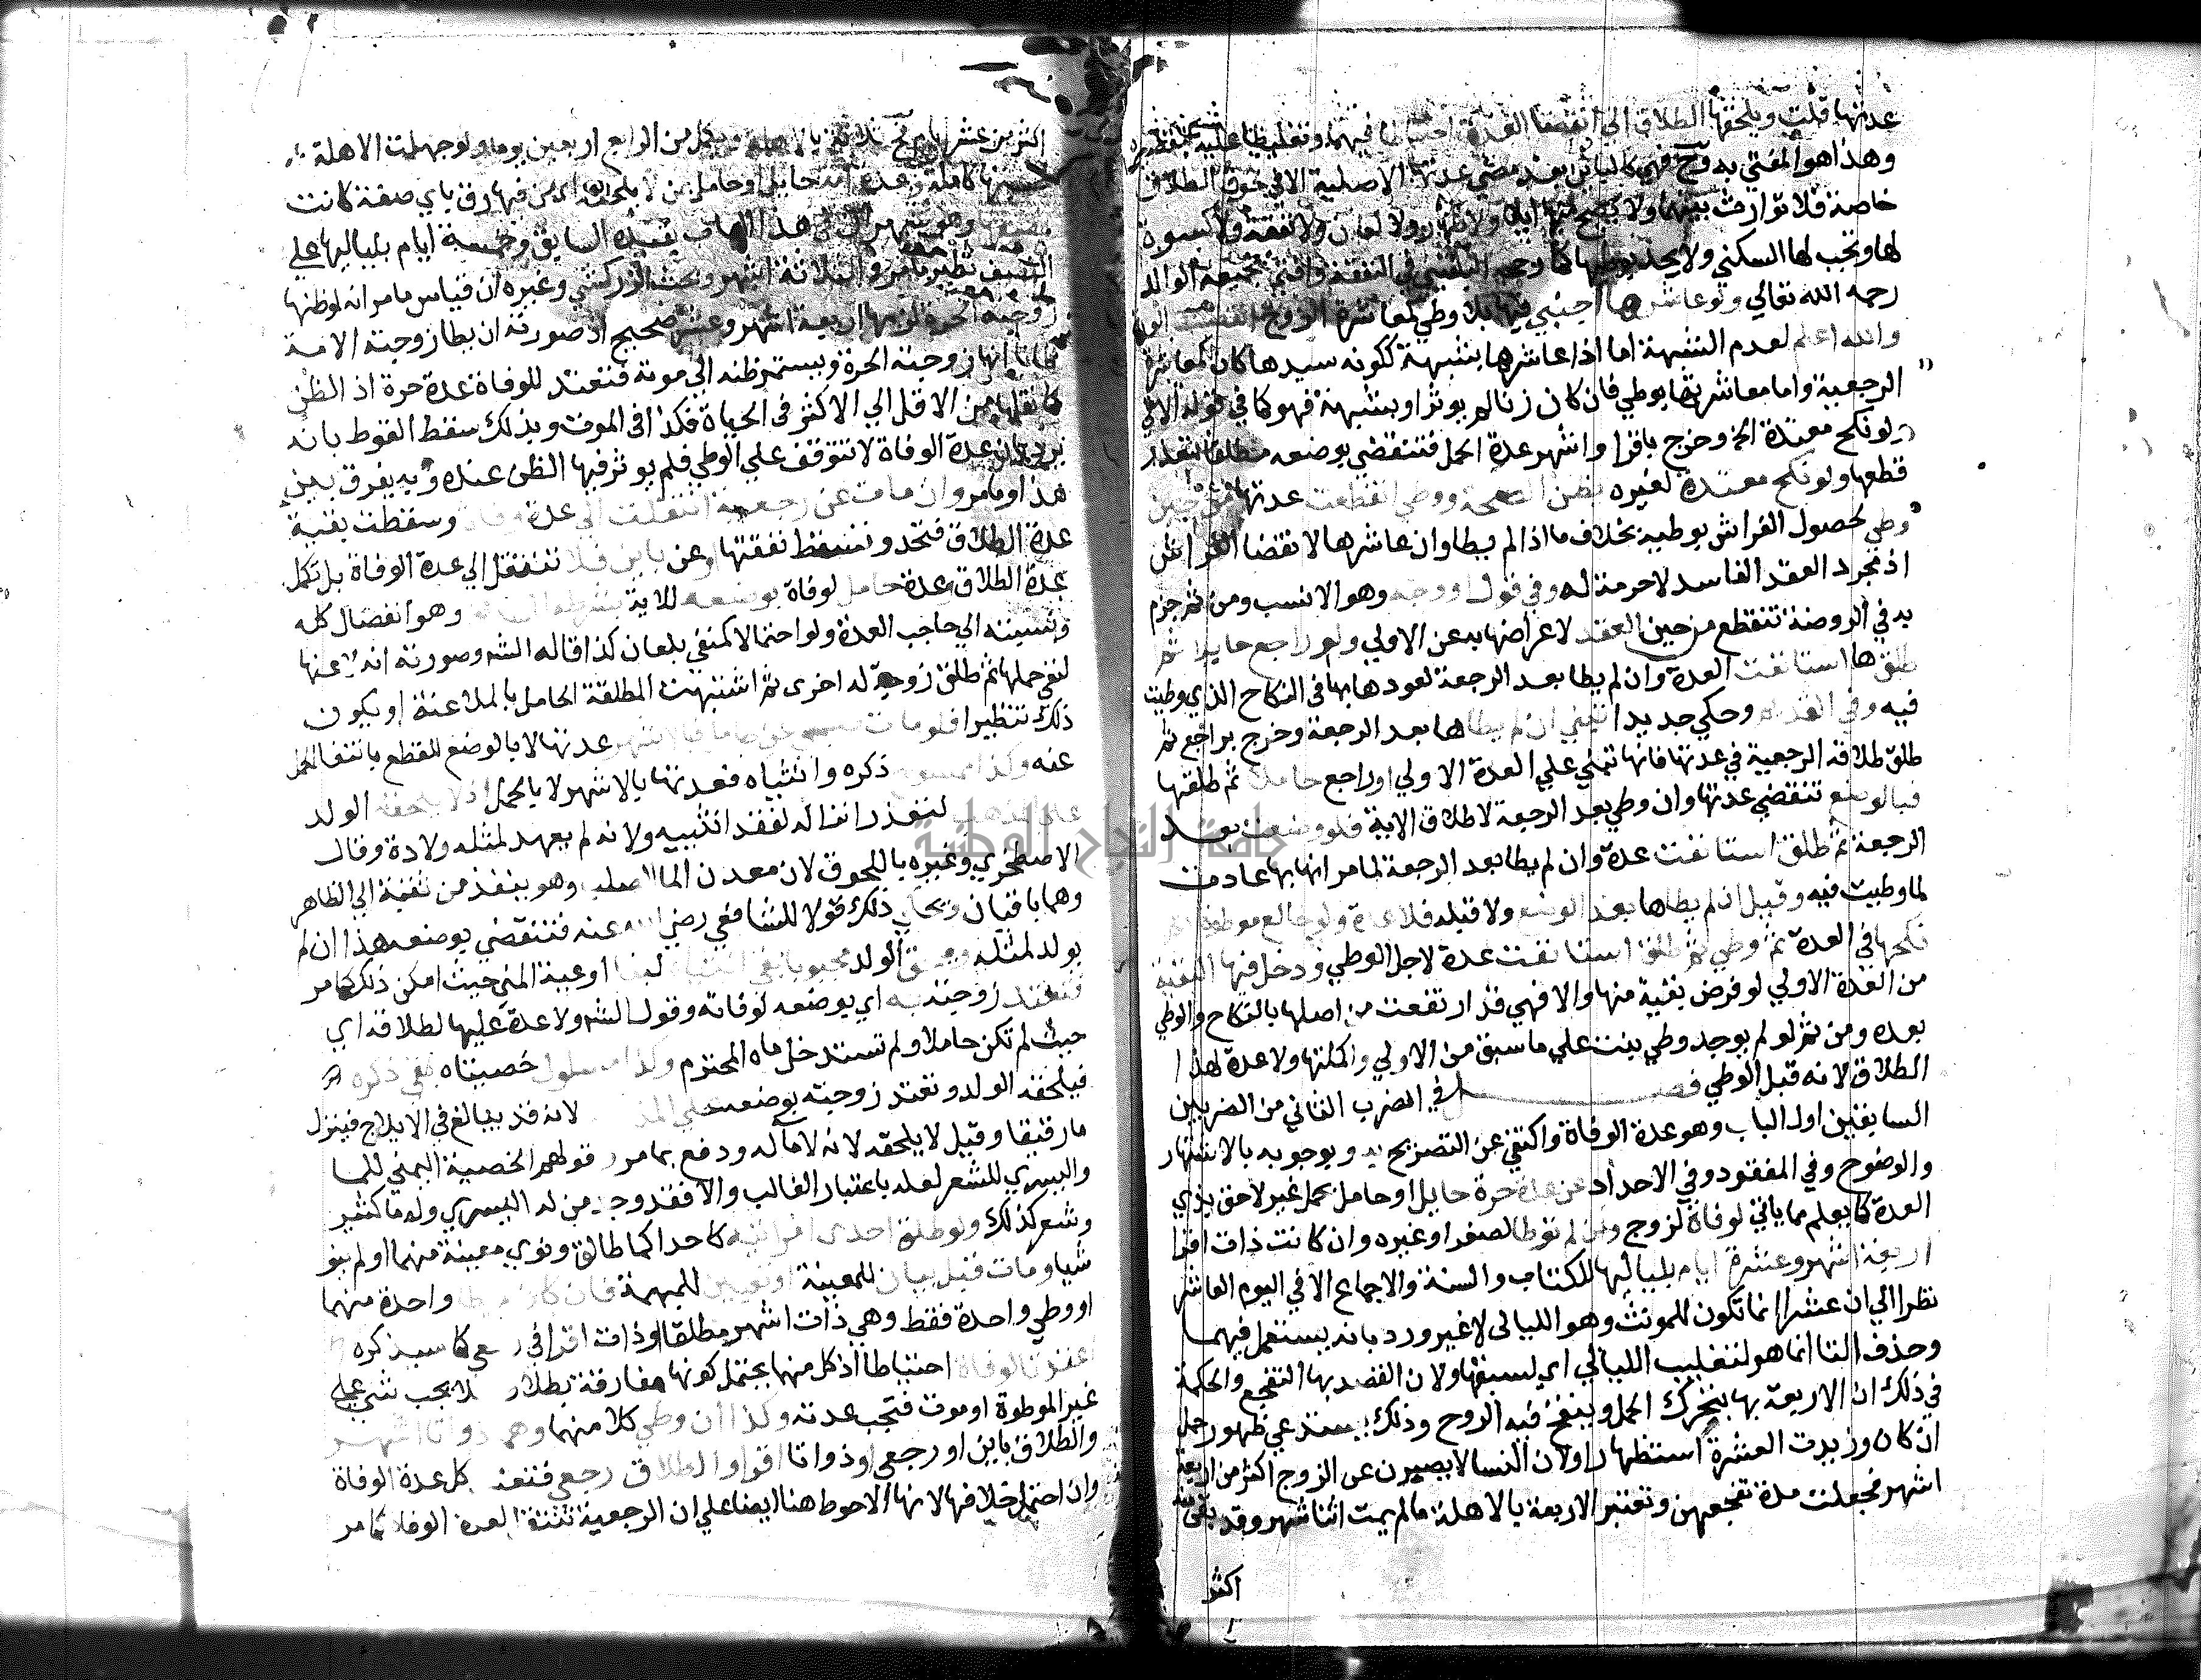 عدتها قلت ويلحقها الطلاق الى انقضا العدة احتياطا فيهما وتغليظا عليه
وهذا هو المفتي به وح فهي كالبائن بعد مضي عدتها الاصلية الا في لحوق الطلاق
خاصة فلا توارث بينهما ولا يصح منها ايلا ولا ظهار ولا لعان ولا نفقة ولا كسوة
لها وتجب لها السكني ولا يحد بوطيها كما رجحه البلقيني في النفقة وافتي بجميعه الوالد
رحمه الله تعالي ولو عاشرها اجنبي فيها بلا وطي كمعاشرة الزوج انقضت
والله اعلم لعدم الشبهة اما اذا عاشرها بشبهة ككونه سيدها كان كمعاشرة
الرجعية واما معاشرتها بوطي فان كان زنا لم يوثر او بشبهة فهو كما في قوله الاتي
ولو نكح معتدة الخ وخرج باقرا واشهر عدة الحمل فتنقضي بوضعه مطلقا لتعذر
قطعها ولو نكح معتدة لغيره بظن الصحة ووطي انقطعت عدتها من حين
وطي لحصول الفراش بوطيه بخلاف ما اذا لم يطا وان عاشرها لانتفا الفراش
اذ مجرد العقد الفاسد لا حرمة له وفي قول او وجه وهو الانسب ومن ثم جزم
به في الروضة تنقطع من حين العقد لاعراضها به عن الاولي ولو راجع حايلا ثم
طلقها استانفت العدة وان لم يطا بعد الرجعة لعودها بها في النكاح الذي وطيت
فيه وفي القديم وحكي جديدا تبني ان لم يطاها بعد الرجعة وخرج براجع ثم
طلق طلاقه الرجعية في عدتها فانها تبني علي العدة الاولي او راجع حاملا ثم طلقها
فبالوضع تنقضي عدتها وان وطي بعد الرجعة لاطلاق الاية فلو وضعت بعد
الرجعة ثم طلق استانفت عدة وان لم يطا بعد الرجعة لما مر انها بها عادت
لما وطيت فيه وقيل ان لم يطاها بعد الوضع ولا قبله فلا عدة ولو خالع موطوة ثم
نكحها في العدة ثم وطي ثم طلق استانفت عدة لاجل الوطي ودخل فيها البقية
من العدة الاولي لو فرض بقية منها والا فهي قد ارتفعت من اصلها بالنكاح والوطي
بعده ومن ثم لو لم يوجد وطي بنت علي ما سبق من الاولي واكملتها ولا عدة لهذا
الطلاق لانه قبل الوطي فصل في الضرب الثاني من الضربين
السابقين اول الباب وهو عدة الوفاة واكتفي عن التصريح به وبوجوبه بالاشتهار
والوضوح وفي المفقود وفي الاحداد عن عدة حرة حايل او حامل بحمل غير لاحق بذي
العدة كما يعلم مما ياتي لوفاة لزوج وان لم توطا لصغر او غيره وان كانت ذات اقرا
اربعة اشهر وعشرة ايام بلياليها للكتاب والسنة والاجماع الا في اليوم العاشر
نظرا الي ان عشرا انما تكون للمونث وهو الليالي لا غير ورد بانه يستعمل فيهما
وحذف التا انما هو لتغليب الليالي اي لسبقها ولان القصد بها التفجع والحكمة
في ذلك ان الاربعة بها يتحرك الحمل وينفخ فيه الروح وذلك يستدعي ظهور حمل
ان كان وزيدت العشرة استظهارا ولان النسا لا يصبرن عن الزوج اكثر من اربعة
اشهر فجعلت مدة تفجعهن وتعتبر الاربعة بالاهلة ما لم يمت اثنا شهر وقد بقي منه
اكثر
اكثر من عشر ايام فح ثلاثة بالاهلة ويكمل من الرابع اربعين يوما ولو جهلت الاهلة
حسبتها كاملة وعدة امة حايل او حامل بمن لا يلحقه اي من فيها رق باي صفة كانت
نصفها وهو شهران هلاليان بقيده السابق وخمسة ايام بلياليها علي
النصف نظير ما مر والثلاثة اشهر وبحث الزركشي وغيره ان قياس ما مر انه لو ظنها
زوجته الحرة لزمها اربعة اشهر وعشر صحيح اذ صورته ان يطا زوجته الامة
ظانا انها زوجته الحرة ويستمر ظنه الي موته فتعتد للوفاة عدة حرة اذ الظن
كما نقلها من الاقل الي الاكثر في الحياة فكذا في الموت وبذلك سقط القول بانه
يرد بان عدة الوفاة لا تتوقف علي الوطي فلم يوثر فيها الظن عنده وبه يفرق بين
هذا وما مر وان مات عن رجعية انتقلت الي عدة وفاة وسقطت بقية
عدة الطلاق فتحد وتسقط نفقتها او عن باين فلا تنتقل الي عدة الوفاة بل تكمل
عدة الطلاق وعدة حامل لوفاة بوضعه للاية بشرطه السابق وهو انفصال كله
ونسبته الي صاحب العدة ولو احتمالا كمنفي بلعان كذا قاله الشه وصورته انه لاعنها
لنفي حملها ثم طلق زوجة له اخرى ثم اشتبهت المطلقة الحامل بالملاعنة او يكون
ذلك تنظيرا فلو مات صبي عن حامل فبالاشهر عدتها لا بالوضع للقطع بانتفا الحمل
عنه وكذا ممسوح ذكره وانثياه فعدتها بالاشهر لا بالحمل اذ لا يلحقه الولد
علي المذهب لتعذر انزاله لفقد انثييه ولانه لم يعهد لمثله ولادة وقال
الاصطخري وغيره باللحوق لان معدن الما الصلب وهو ينفذ من ثقبة الي الظاهر
وهما باقيان وحكي ذلك قولا للشافعي رضي الله عنه فتنقضي بوضعه هذا ان لم
يولد لمثله ويلحق الولد مجبوبا بقي انثياه لبقا اوعية المني حيث امكن ذلك كما مر
فتعتد زوجته به اي بوضعه لوفاته وقول الشه ولا عدة عليها لطلاقه اي
حيث لم تكن حاملا ولم تستدخل ماه المحترم وكذا مسلول خصيتاه بقي ذكره
فيلحقه الولد وتعتد زوجته بوضعه علي المذهب لانه قد يبالغ في الايلاج فينزل
ما رقيقا وقيل لا يلحقه لانه لا ما له ودفع بما مر وقولهم الخصية اليمني للما
واليسري للشعر لعله باعتبار الغالب والا فقد وجد من له اليسري وله ما كثير
وشعر كذلك ولو طلق احدى امراتيه كاحداكما طالق ونوي معينة منهما او لم ينو
شيا ومات قبل بيان للمعينة او تعيين للمبهمة فان كان لم يطا واحدة منهما
او وطي واحدة فقط وهي ذات اشهر مطلقا او ذات اقرا في رجعي كما سيذكره
اعتدتا لوفاة احتياطا اذ كل منها يحتمل كونها مفارقة بطلاق فلا يجب شي علي
غير الموطوة او موت فتجب عدته وكذا ان وطي كلا منهما وهما ذواتا اشهر
والطلاق باين او رجعي او ذواتا اقرا والطلاق رجعي فتعتد كل عدة الوفاة
وان احتمل خلافها لانها الاحوط هنا ايضا علي ان الرجعية تنتقل لعدة الوفاة كما مر
جامعة النجاح الوطنية